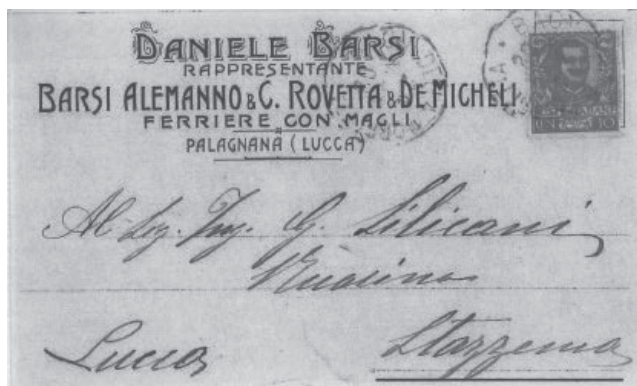 DANIELE BARSI
RAPPRESENTANTE
BARSI ALEMANNO & C. ROVETTA & DE MICHELI
FERRIERE CON MAGLI
PALAGNANA (LUCCA)
Al Sig. Ing. G. Silicani
Ruosina
Lucca
Stazzema